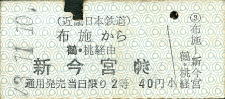 (近畿日本鉄道)
布施から
鶴・桃経由
新今宮ゆき
通用発売当日限り2等 40円
小
布施
新今宮